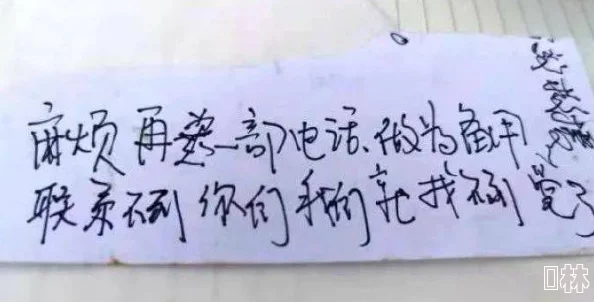 麻烦再装一部电话、做为备用
联系不到你们我们就找不到
了
林